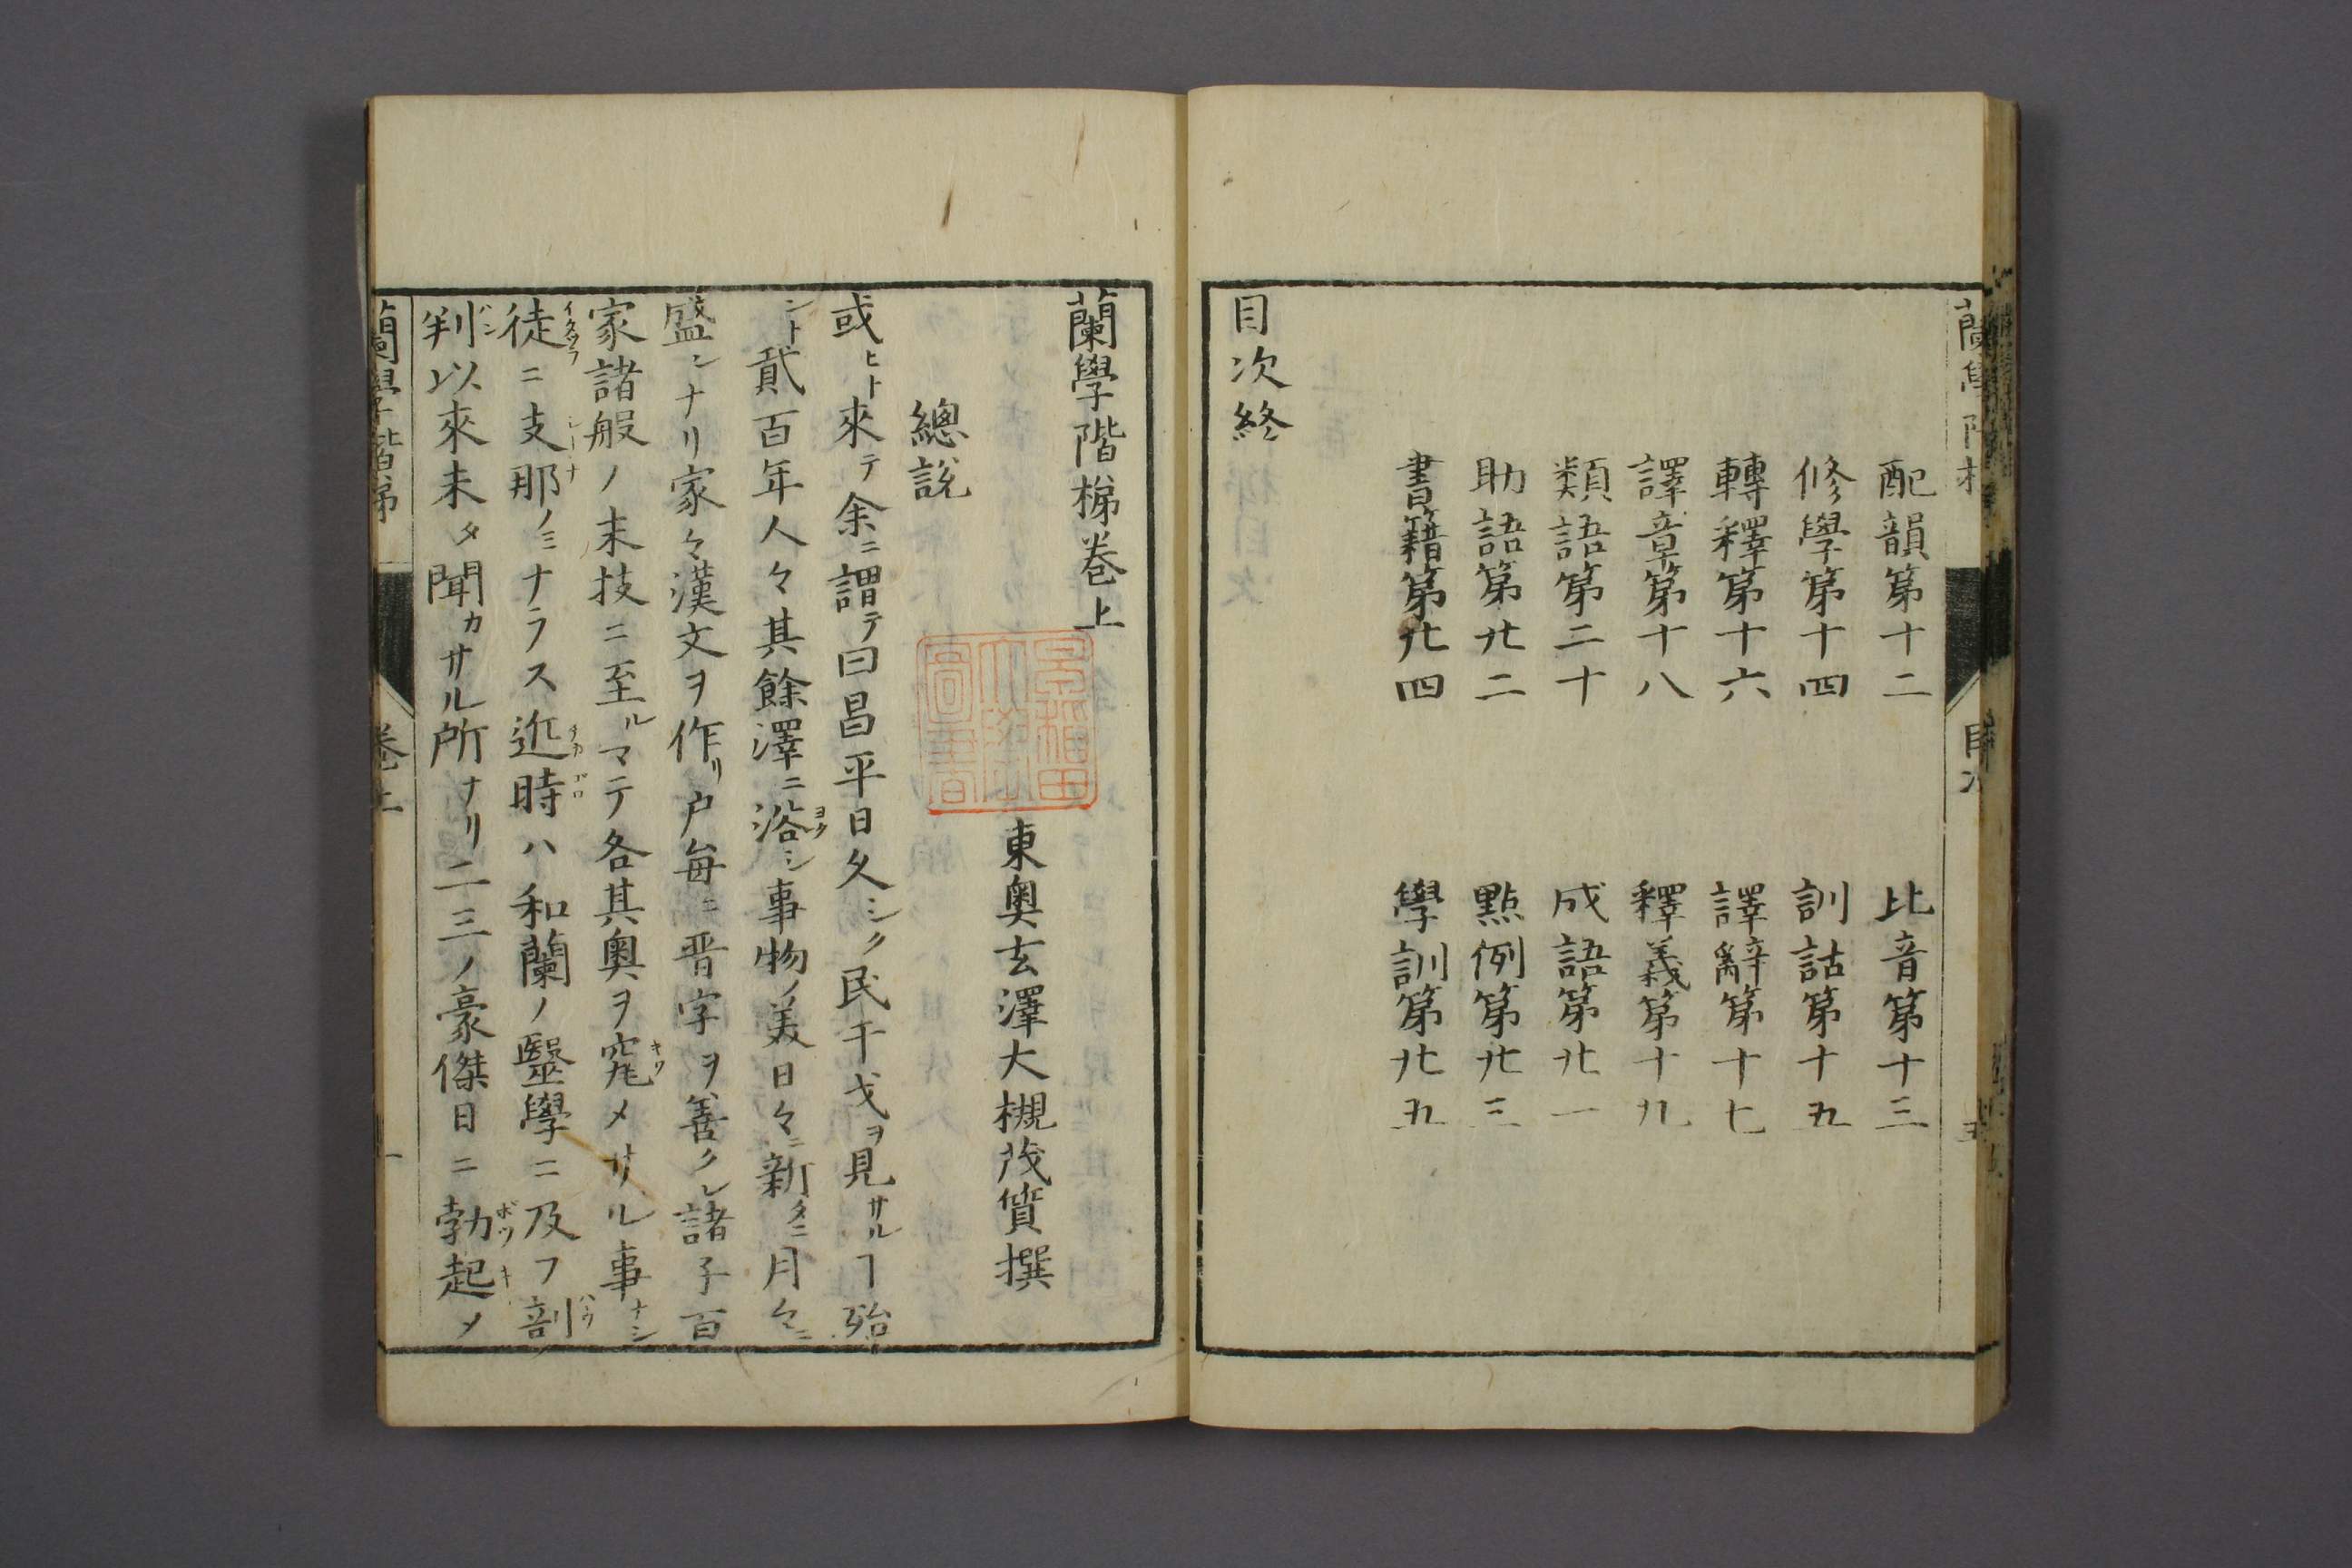 配韻第十二　比音第十三
修學第十四　訓詁第十五
轉釋第十六　譯辭第十七
譯章第十八　釋義第十九
類語第二十　成語第廿一
助語第廿二　點例第廿三
書籍第廿四　學訓第廿五
目次終
蘭學階梯巻上
東奥玄澤大槻茂質撰
總説
或ヒト來テ余ニ謂テ曰昌平日久シク民干戈ヲ見サルヿ殆
ント貮百年人々其餘澤ニ浴シ事物ノ美日々ニ新タニ月々ニ
盛シナリ家々漢文ヲ作リ戸毎ニ晋字ヲ善クシ諸子百
家諸般ノ末技ニ至ルマテ各其奥ヲ究メサル事ナシ
徒ニ支那ノミナラス近時ハ和蘭ノ毉學ニ及フ剖
判以來未タ聞カサル所ナリ二三ノ豪傑日ニ勃起メ
蘭學階梯　巻上　一
早稲田大學圖書